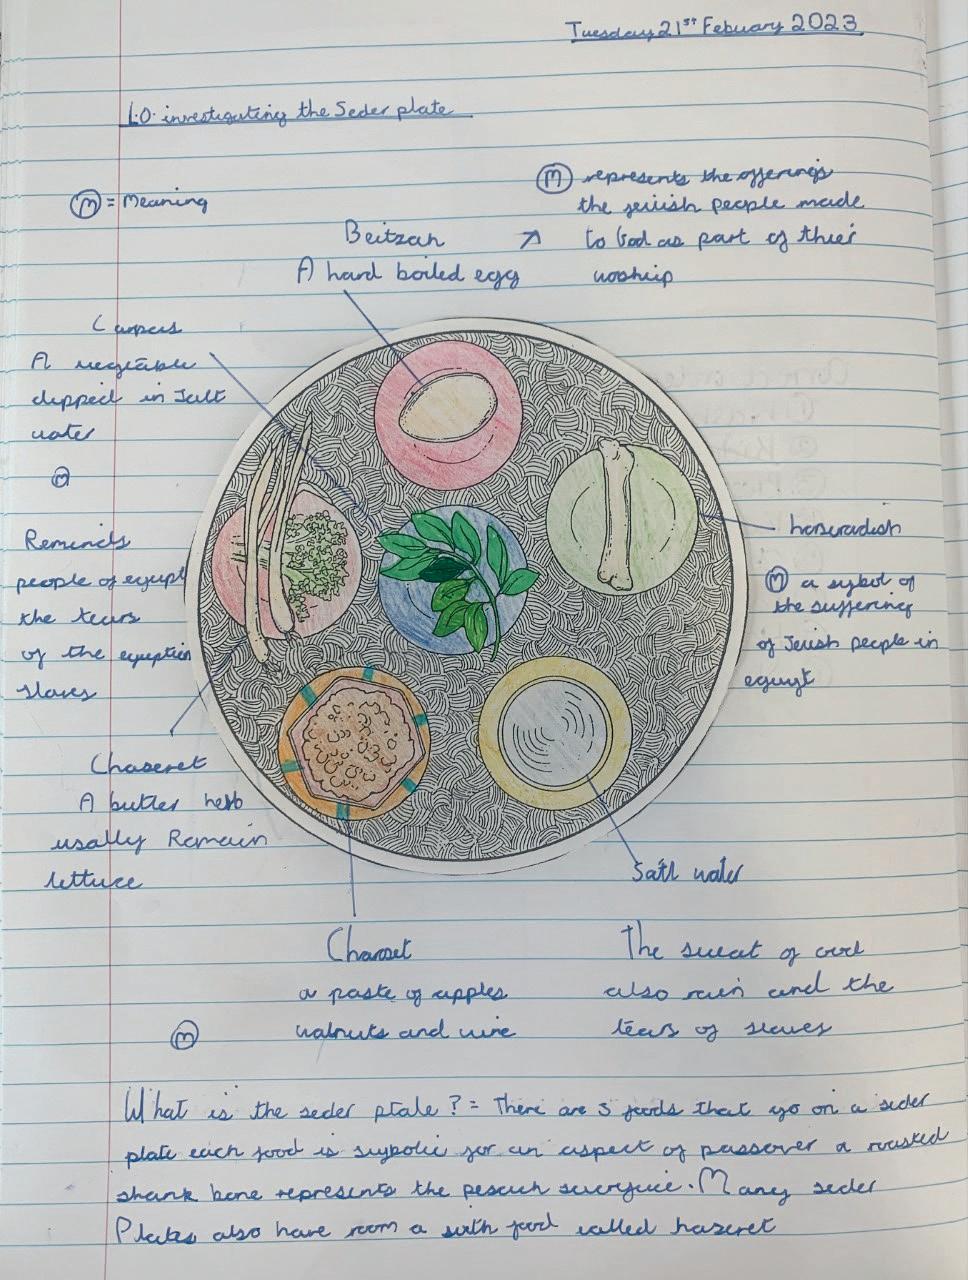 Tuesday 21st Febuary 2023
L.O. investigating the Seder plate
(M) = Meaning
(M) represents the offerings
the jewish people made
to God as part of thier
woship
Beitzah
A hard boiled egg
Carpas
A vegetable
dipped in Salt
water
(M)
Reminds
people of egupt
the tears
of the eguption
slaves
horseradish
(M) a sybol of
the suffering
of Jeiish people in
egupt
Chaseret
A butter herb
usally Romain
lettuce
Satl water
Charoset
a paste of apples
walnuts and wine
(M)
The sweat of
also rain and the
tears of slaves
What is the seder ptale? = There are 5 foods that go on a seder
plate each food is sybolic for an aspect of passover a roasted
shank bone represents the pesach
Many seder
Plates also have room a sixth food called haseret